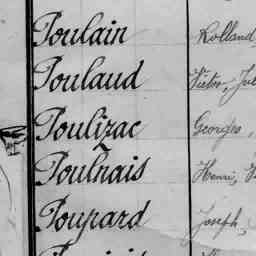 Poulain Rolland
Poulaud Victor, Jul
Poulizac Georges,
Poulnais Henri,
Poupard Joseph,